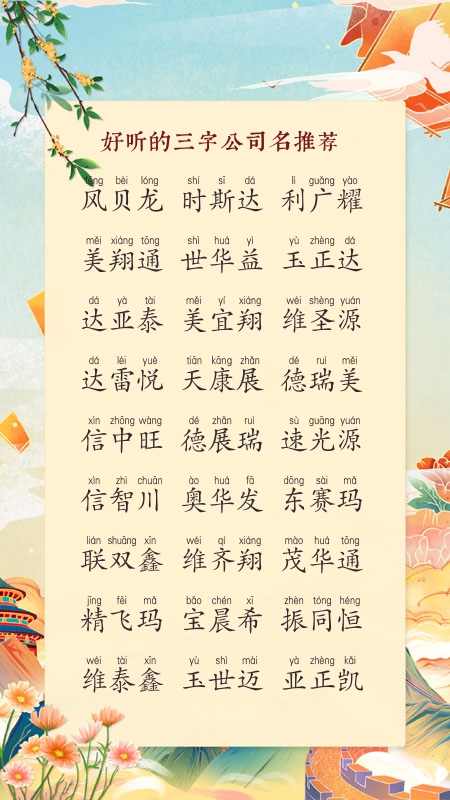 好听的三字公司名推荐
fēng bèi lóng shí sī dá lì guǎng yào
风贝龙 时斯达 利广耀
měi xiáng tōng shì huá yì yù zhèng dá
美翔通 世华益 玉正达
dá yà tài měi yí xiáng wéi shèng yuán
达亚泰 美宜翔 维圣源
dá léi yuè tiān kāng zhǎn dé ruì měi
达雷悦 天康展 德瑞美
xìn zhōng wàng dé zhǎn ruì sù guāng yuán
信中旺 德展瑞 速光源
xìn zhì chuān ào huá fā dōng sài mǎ
信智川 奥华发 东赛玛
lián shuāng xīn wéi qí xiáng mào huá tōng
联双鑫 维齐翔 茂华通
jīng fēi mǎ bǎo chén xī zhèn tóng héng
精飞玛 宝晨希 振同恒
wéi tài xīn yù shì mài yà zhèng kǎi
维泰鑫 玉世迈 亚正凯